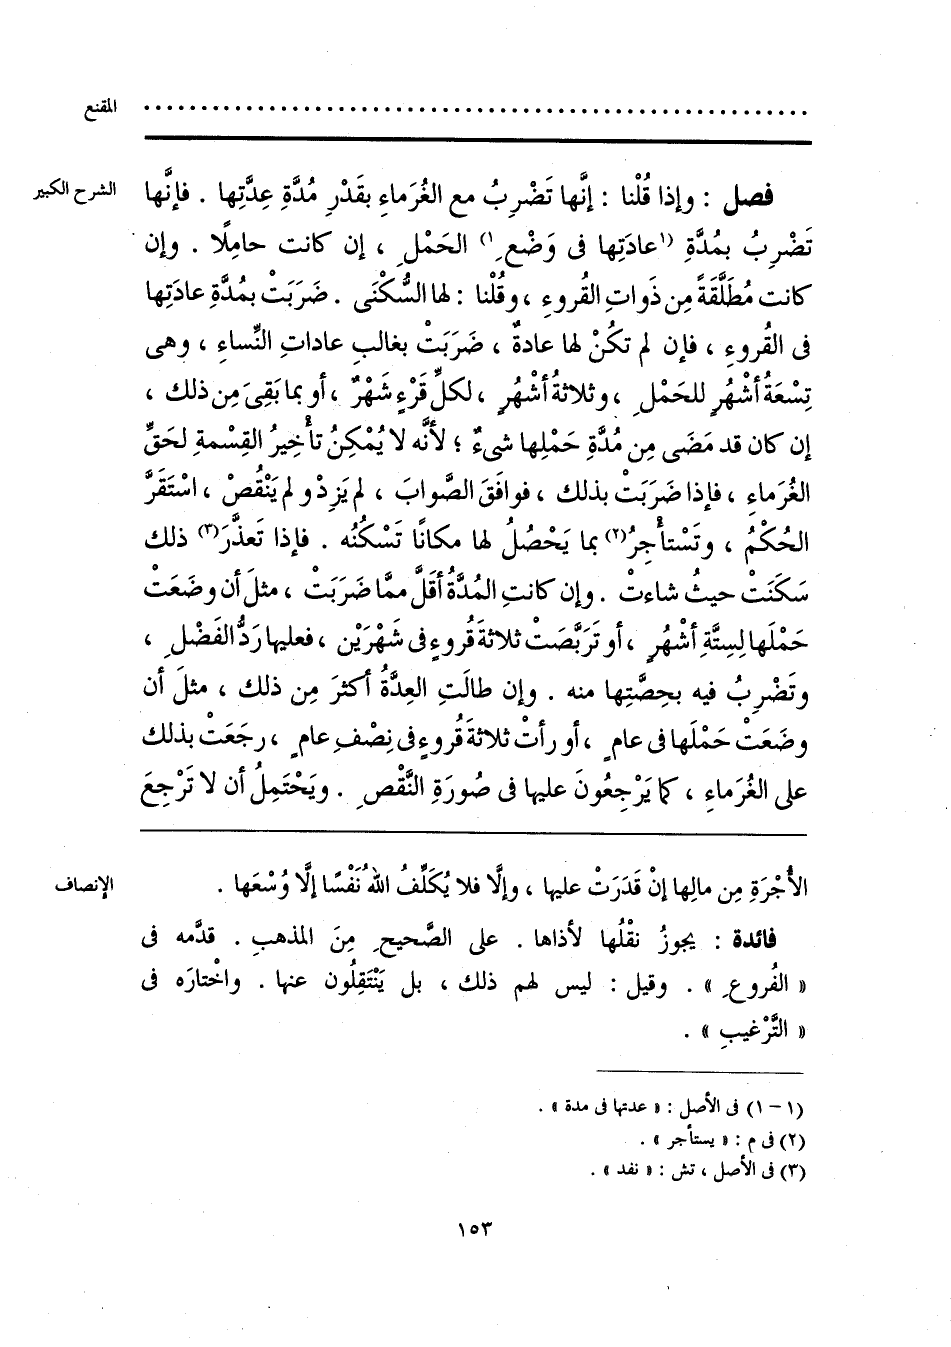 المقنع ..........................................................
الشرح الكبير
فصل : وإذا قُلْنا : إنَّها تَضْرِبُ مع الغُرَماءِ بقَدْرِ مُدَّةِ عِدَّتِها . فإنَّها
تَضْرِبُ بمُدَّةِ (١عادَتِها فى وَضْعِ١) الحَمْلِ ، إن كانت حامِلًا . وإن
كانت مُطَلَّقَةً مِن ذَواتِ القُروءِ ، وقُلْنا : لها السُّكْنَى . ضَرَبَتْ بمُدَّةِ عادَتِها
فى القُروءِ ، فإن لم تكُنْ لها عادةٌ ، ضَرَبَتْ بغالبِ عاداتِ النِّساءِ ، وهى
تِسْعَةُ أشْهُرٍ للحَمْلِ ، وثلاثةُ أشْهُرٍ ، لكلِّ قَرْءٍ شَهْرٌ ، أو بما بَقِىَ مِن ذلك ،
إن كان قد مَضَى مِن مُدَّةِ حَمْلِها شىءٌ ؛ لأنَّه لا يُمْكِنُ تأْخِيرُ القِسْمةِ لحَقِّ
الغُرَماءِ ، فإذا ضَرَبَتْ بذلك ، فوافَقَ الصَّوابَ ، لم يَزِدْ ولم يَنْقُصْ ، اسْتَقَرَّ
الحُكْمُ ، وتَسْتأْجِرُ(٢) بما يَحْصُلُ لها مكانًا تَسْكُنُه . فإذا تَعذَّرَ(٣) ذلك
سَكَنَتْ حيثُ شاءت . وإن كانتِ المُدَّةُ أقَلَّ ممَّا ضَرَبَتْ ، مثلَ أن وضَعَت
حَمْلَها لِستَّةِ أشْهُرٍ ، أو تَرَبَّصَتْ ثلاثةَ قُروءٍ فى شَهْرَيْن ، فعليها رَدُّ الفَضْلِ ،
وتَضْرِبُ فيه بحِصَّتِها منه . وإن طالَتِ العِدَّةُ أكثرَ مِن ذلك ، مثلَ أن
وضَعَتْ حَمْلَها فى عامٍ ، أو رأتْ ثلاثةَ قُروءٍ فى نِصْفِ عامٍ ، رجَعَتْ بذلك
على الغُرَماءِ ، كما يَرْجِعُونَ عليها فى صُورَةِ النَّقْصِ . ويَحْتَمِلُ أن لا تَرْجِعَ
الإنصاف
الأُجْرَةِ مِن مالِها إنْ قَدَرَتْ عليها ، وإلَّا فلا يُكَلِّفُ اللهُ نَفْسًا إلَّا وُسْعَها .
فائدة : يجوزُ نقْلُها لأذاها . على الصَّحيحِ مِنَ المذهبِ . قدَّمه فى
« الفُروعِ » . وقيل : ليس لهم ذلك ، بل يَنْتَقِلُون عنها . واخْتارَه فى
« التَّرْغيبِ » .
(١ - ١) فى الأصل : « عدتها فى مدة » .
(٢) فى م : « يستأجر » .
(٣) فى الأصل ، تش : « نفد » .
١٥٣